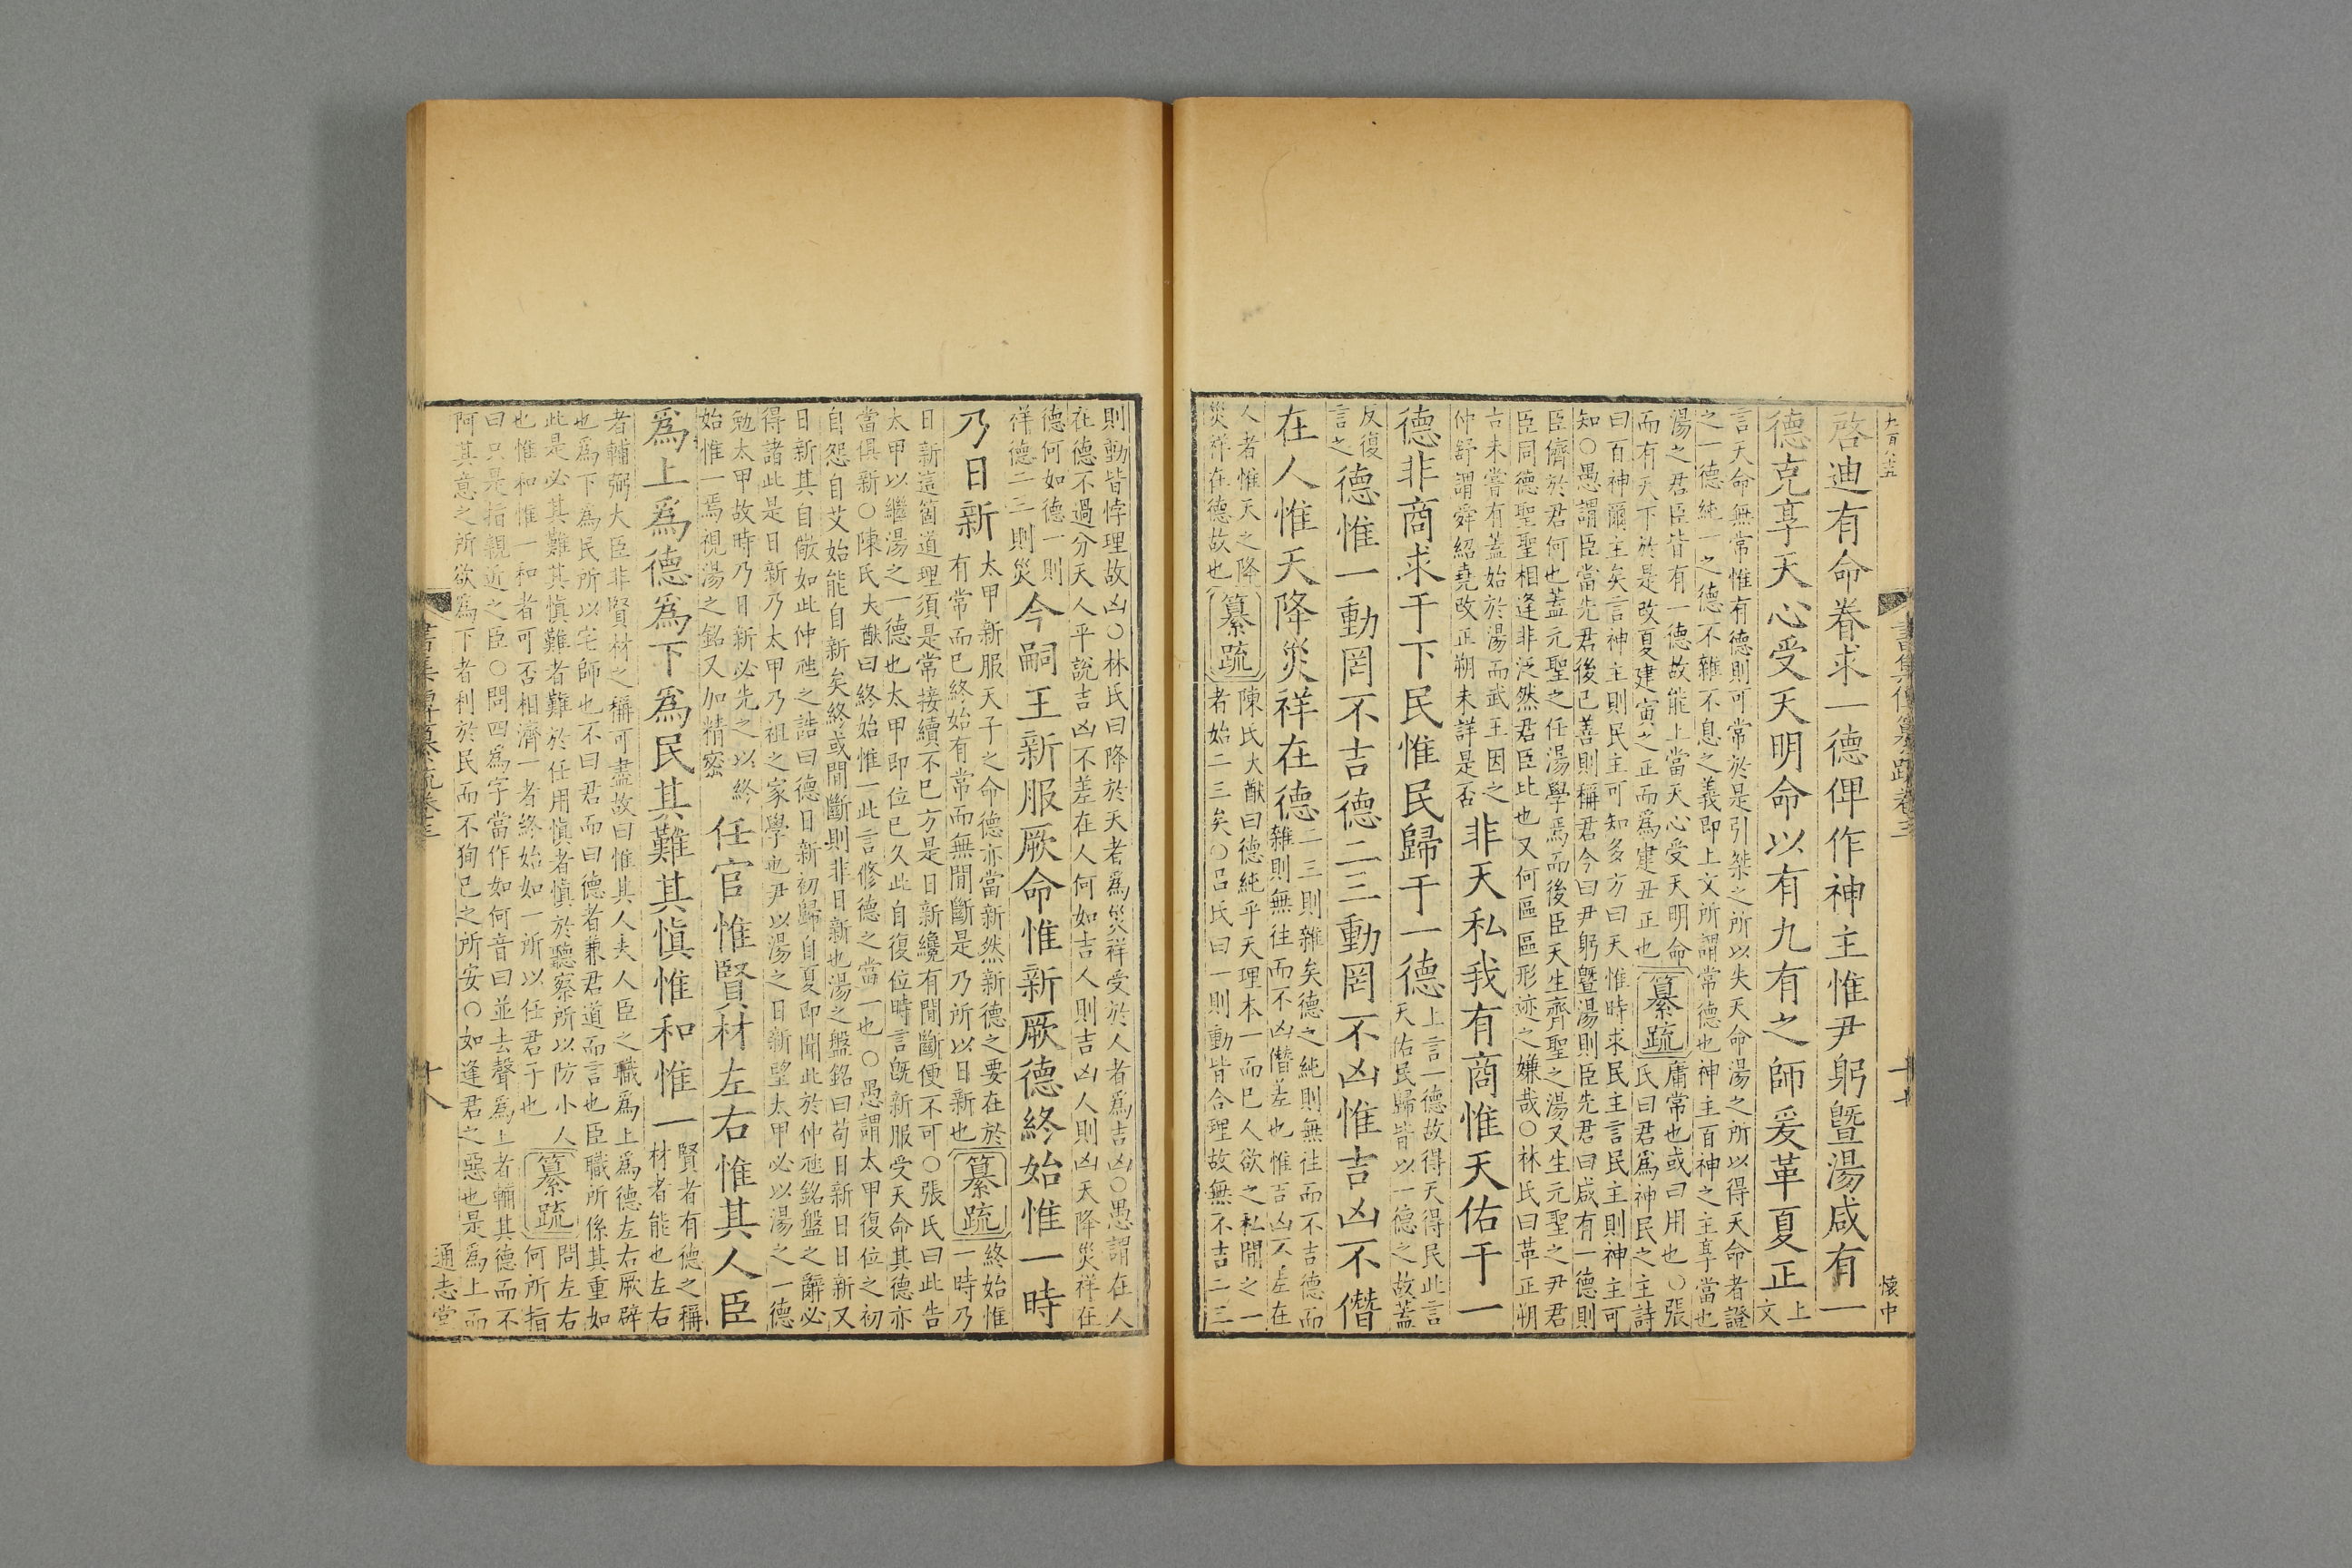 九百八十五
書集傳纂疏卷三
十七
懷中
啓迪有命眷求一德俾作神主惟尹躬曁湯咸有一
德克享天心受天明命以有九有之師爰革夏正上
文
言天命無常惟有德則可常於是引桀之所以失天命湯之所以得天命者證
之一德純一之德不雜不息之義即上文所謂常德也神主百神之主享當也
湯之君臣皆有一德故能上當天心受天明命
而有天下於是改夏建寅之正而爲建丑正也
纂疏
庸常也或曰用也○張
氏曰君爲神民之主詩
曰百神爾主矣言神主則民主可知多方曰天惟時求民主言民主則神主可
知○愚謂臣當先君後己善則稱君今曰尹躬曁湯則臣先君曰咸有一德則
臣儕於君何也蓋元聖之任湯學焉而後臣天生齊聖之湯又生元聖之尹君
臣同德聖聖相逢非泛然君臣比也又何區區形迹之嫌哉○林氏曰革正朔
古未嘗有蓋始於湯而武王因之
仲舒謂舜紹堯改正朔未詳是否
非天私我有商惟天佑于一
德非商求于下民惟民歸于一德
上言一德故得天得民此言
天佑民歸皆以一德之故蓋
反復
言之
德惟一動罔不吉德二三動罔不凶惟吉凶不僭
在人惟天降災祥在德
二三則雜矣德之純則無往而不吉德而
雜則無往而不凶僭差也惟吉凶不差在
人者惟天之降
災祥在德故也
纂疏
陳氏大猷曰德純乎天理本一而已人欲之私閒之一
者始二三矣○呂氏曰一則動皆合理故無不吉二三
則動皆悖理故凶○林氏曰降於天者爲災祥受於人者爲吉凶○愚謂在人
在德不過分天人平說吉凶不差在人何如吉人則吉凶人則凶天降災祥在
德何如德一則
祥德二三則災
今嗣王新服厥命惟新厥德終始惟一時
乃日新
太甲新服天子之命德亦當新然新德之要在於
有常而已終始有常而無閒斷是乃所以日新也
纂疏
終始惟
一時乃
日新這箇道理須是常接續不已方是日新纔有閒斷便不可○張氏曰此告
太甲以繼湯之一德也太甲即位已久此自復位時言旣新服受天命其德亦
當俱新○陳氏大猷曰終始惟一此言修德之當一也○愚謂太甲復位之初
自怨自艾始能自新矣終或閒斷則非日新也湯之盤銘曰苟日新日日新又
日新其自儆如此仲虺之誥曰德日新初歸自夏即聞此於仲虺銘盤之辭必
得諸此是日新乃太甲乃祖之家學也尹以湯之日新望太甲必以湯之一德
勉太甲故時乃日新必先之以終
始惟一焉視湯之銘又加精密
任官惟賢材左右惟其人臣
爲上爲德爲下爲民其難其愼惟和惟一
賢者有德之稱
材者能也左右
者輔弼大臣非賢材之稱可盡故曰惟其人夫人臣之職爲上爲德左右厥辟
也爲下爲民所以宅師也不曰君而曰德者兼君道而言也臣職所係其重如
此是必其難其愼難者難於任用愼者愼於聽察所以防小人
也惟和惟一和者可否相濟一者終始如一所以任君子也
纂疏
問左右
何所指
曰只是指親近之臣○問四爲字當作如何音曰並去聲爲上者輔其德而不
阿其意之所欲爲下者利於民而不狥己之所安○如逢君之惡也是爲上而
書集傳纂疏卷三
十八
通志堂